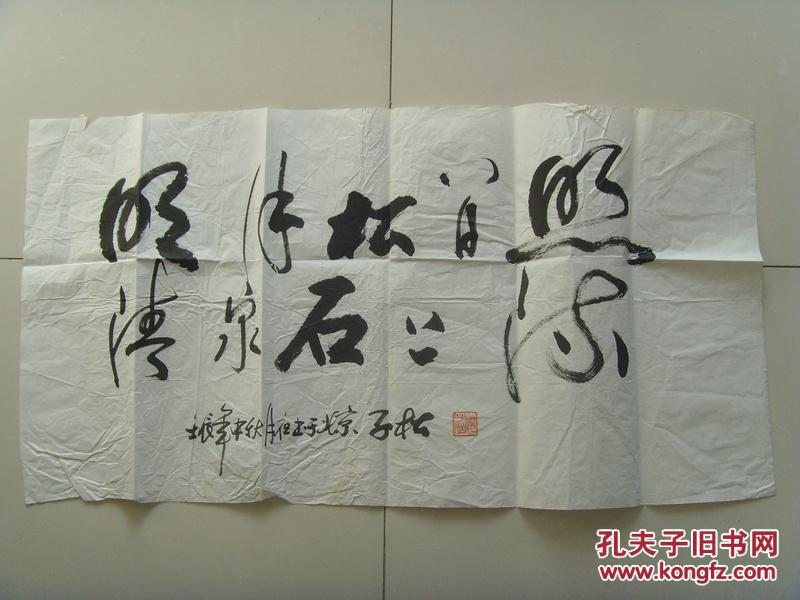 明月松间照
清泉石上流
壬辰年中秋月夜书于北京 子松
孔夫子旧书网
www.kongfz.com